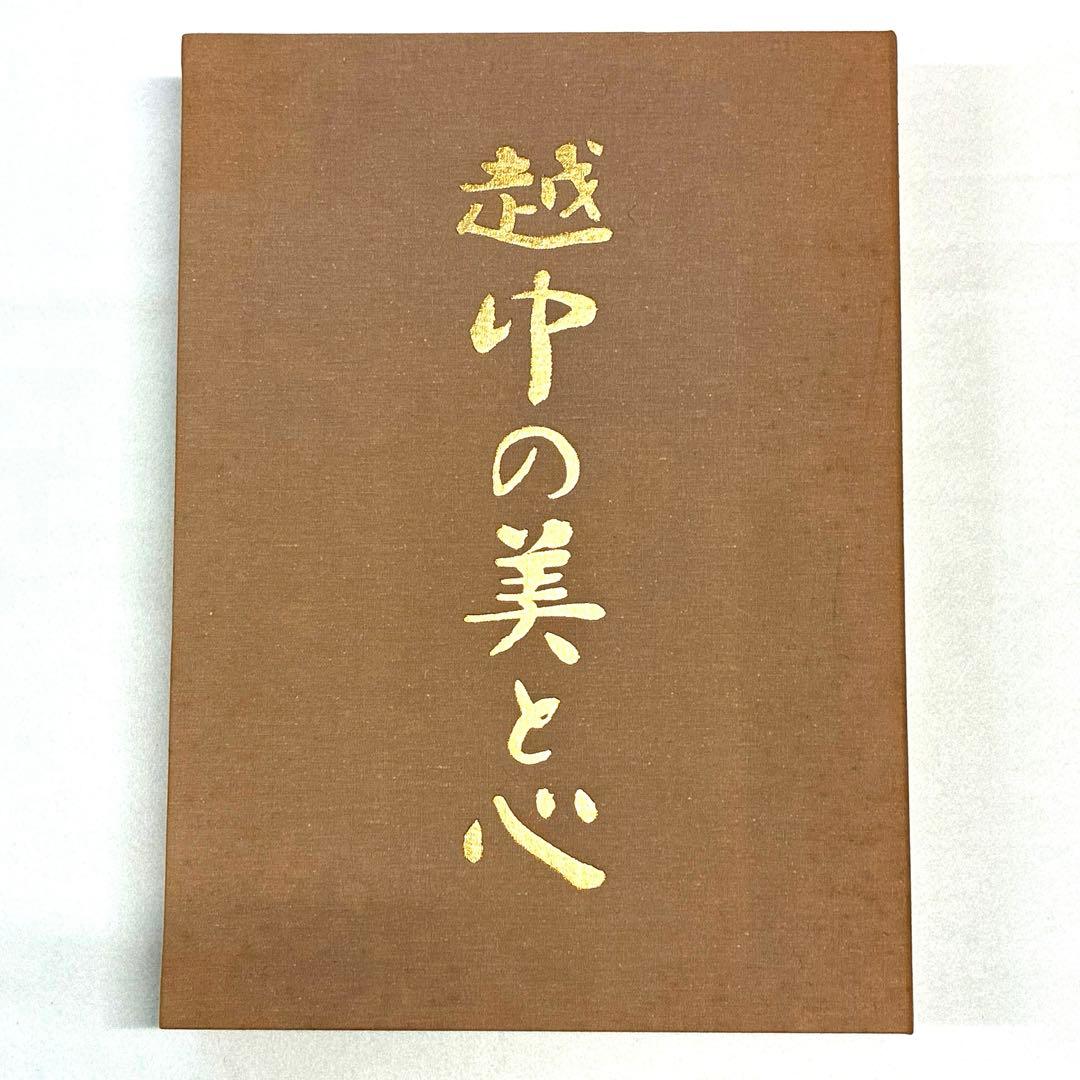 越中の美と心